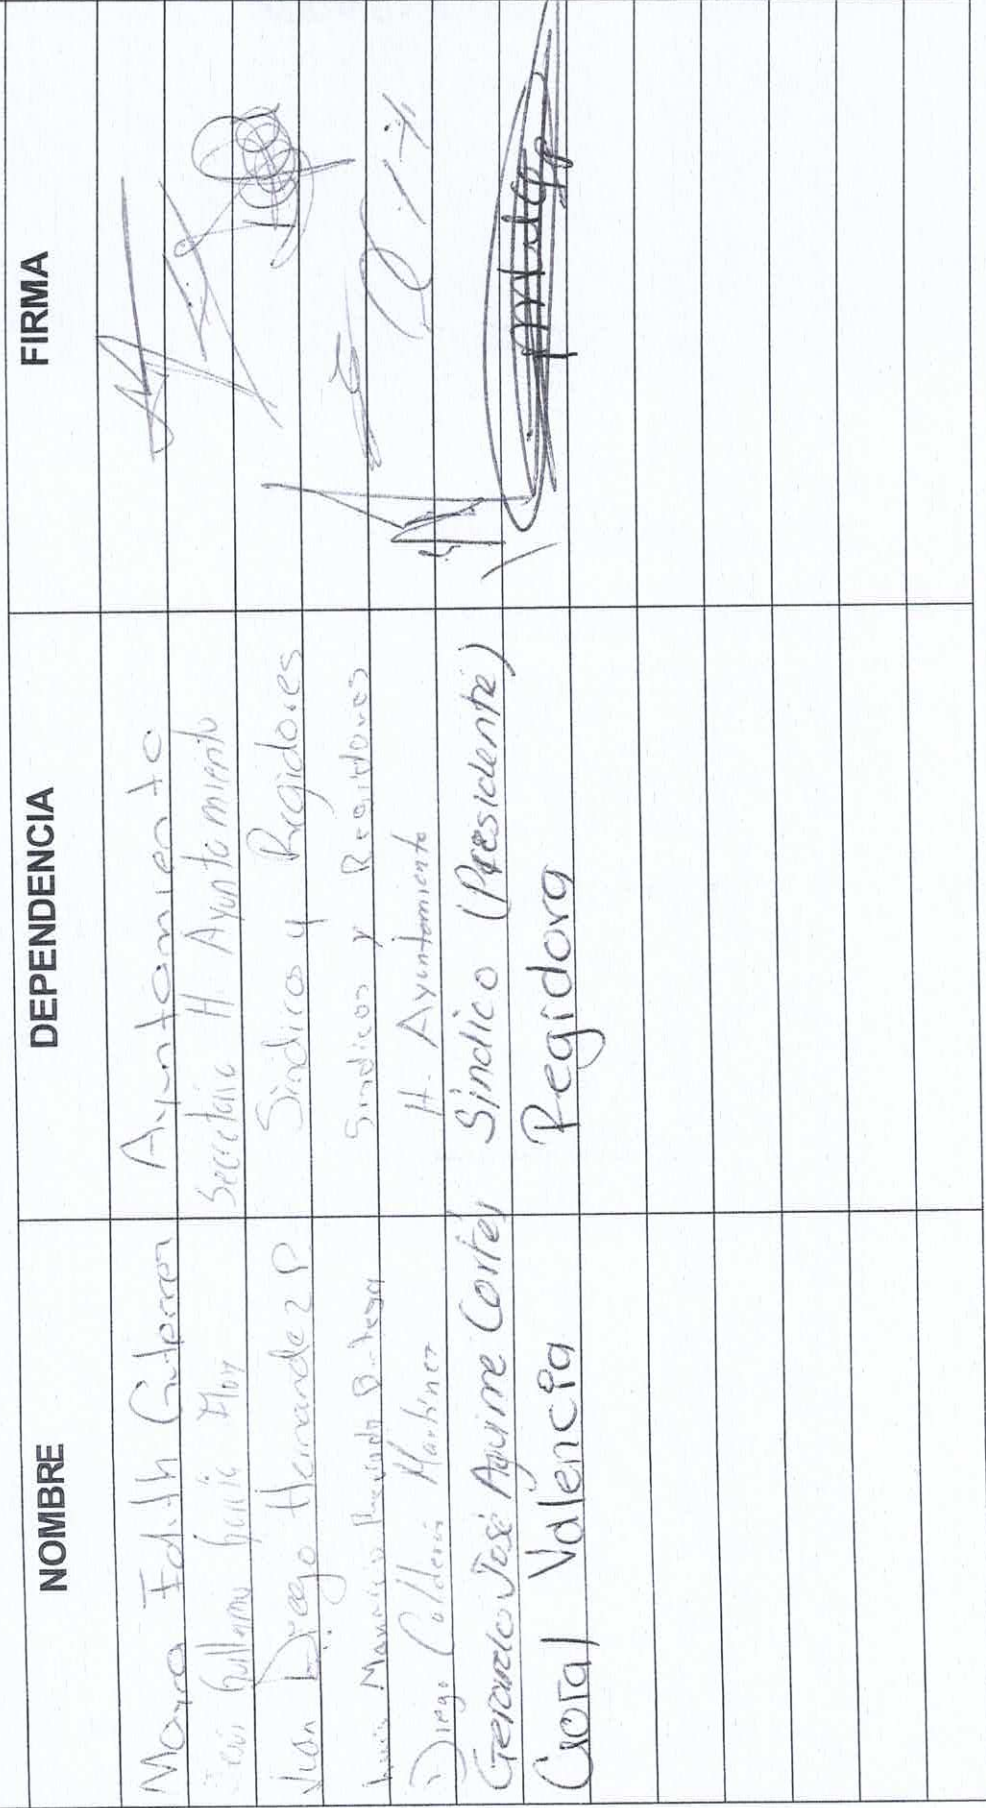 NOMBRE DEPENDENCIA FIRMA
Mayra Edith Gutierrez Ayuntamiento
Guillermo García Secretaría H. Ayuntamiento
Juan Diego Hernandez P Sindicos y Regidores
Luis Sindicos y Regidores
Diego Calderón Martínez H. Ayuntamiento
Gerardo José Aguirre Cortés Sindico (Presidente)
Coral Valencia Regidora